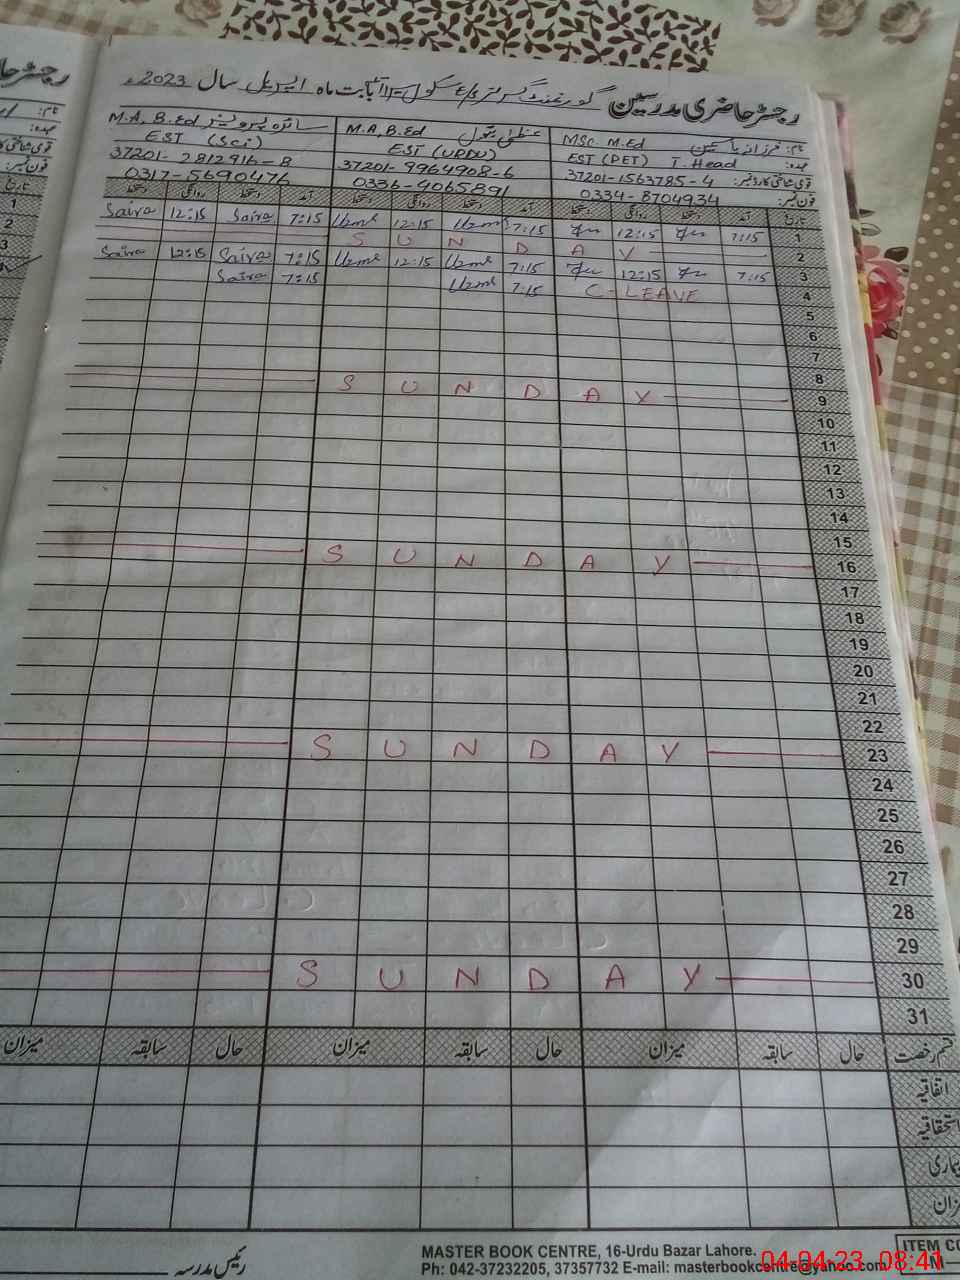 رجسٹر حاضری مدرسین گورنمنٹ بابت ماہ اپریل سال 2023ء
نام: فرزانہ یاسمین MSc. M.Ed
عہدہ: EST (PET) T. Head
قومی شناختی کارڈ نمبر: 37201-1563785-4
فون نمبر: 0334-8704934
عظمیٰ بتول M.A, B.Ed
EST (URDU)
37201-9964908-6
0336-9065891
سائرہ پروین M.A, B.Ed
EST (Sci)
37201-2812916-8
0317-5690476
تاریخ آمد دستخط روانگی دستخط آمد دستخط روانگی دستخط آمد دستخط روانگی دستخط
1 7:15 12:15 7:15 Uzma 12:15 Uzma 7:15 Saira 12:15 Saira
2 SUNDAY
3 7:15 12:15 7:15 Uzma 12:15 Uzma 7:15 Saira 12:15 Saira
4 C-LEAVE 7:15 Uzma 7:15 Saira
5
6
7
8
9 SUNDAY
10
11
12
13
14
15
16 SUNDAY
17
18
19
20
21
22
23 SUNDAY
24
25
26
27
28
29
30 SUNDAY
31
قسم رخصت حال سابقہ میزان حال سابقہ میزان حال سابقہ میزان
اتفاقیہ
استحقاقیہ
بیماری
میزان
رئیس مدرسہ
MASTER BOOK CENTRE, 16-Urdu Bazar Lahore.
Ph: 042-37232205, 37357732 E-mail: masterbookcentre@yahoo.com
ITEM CO
04-04-23 08:41